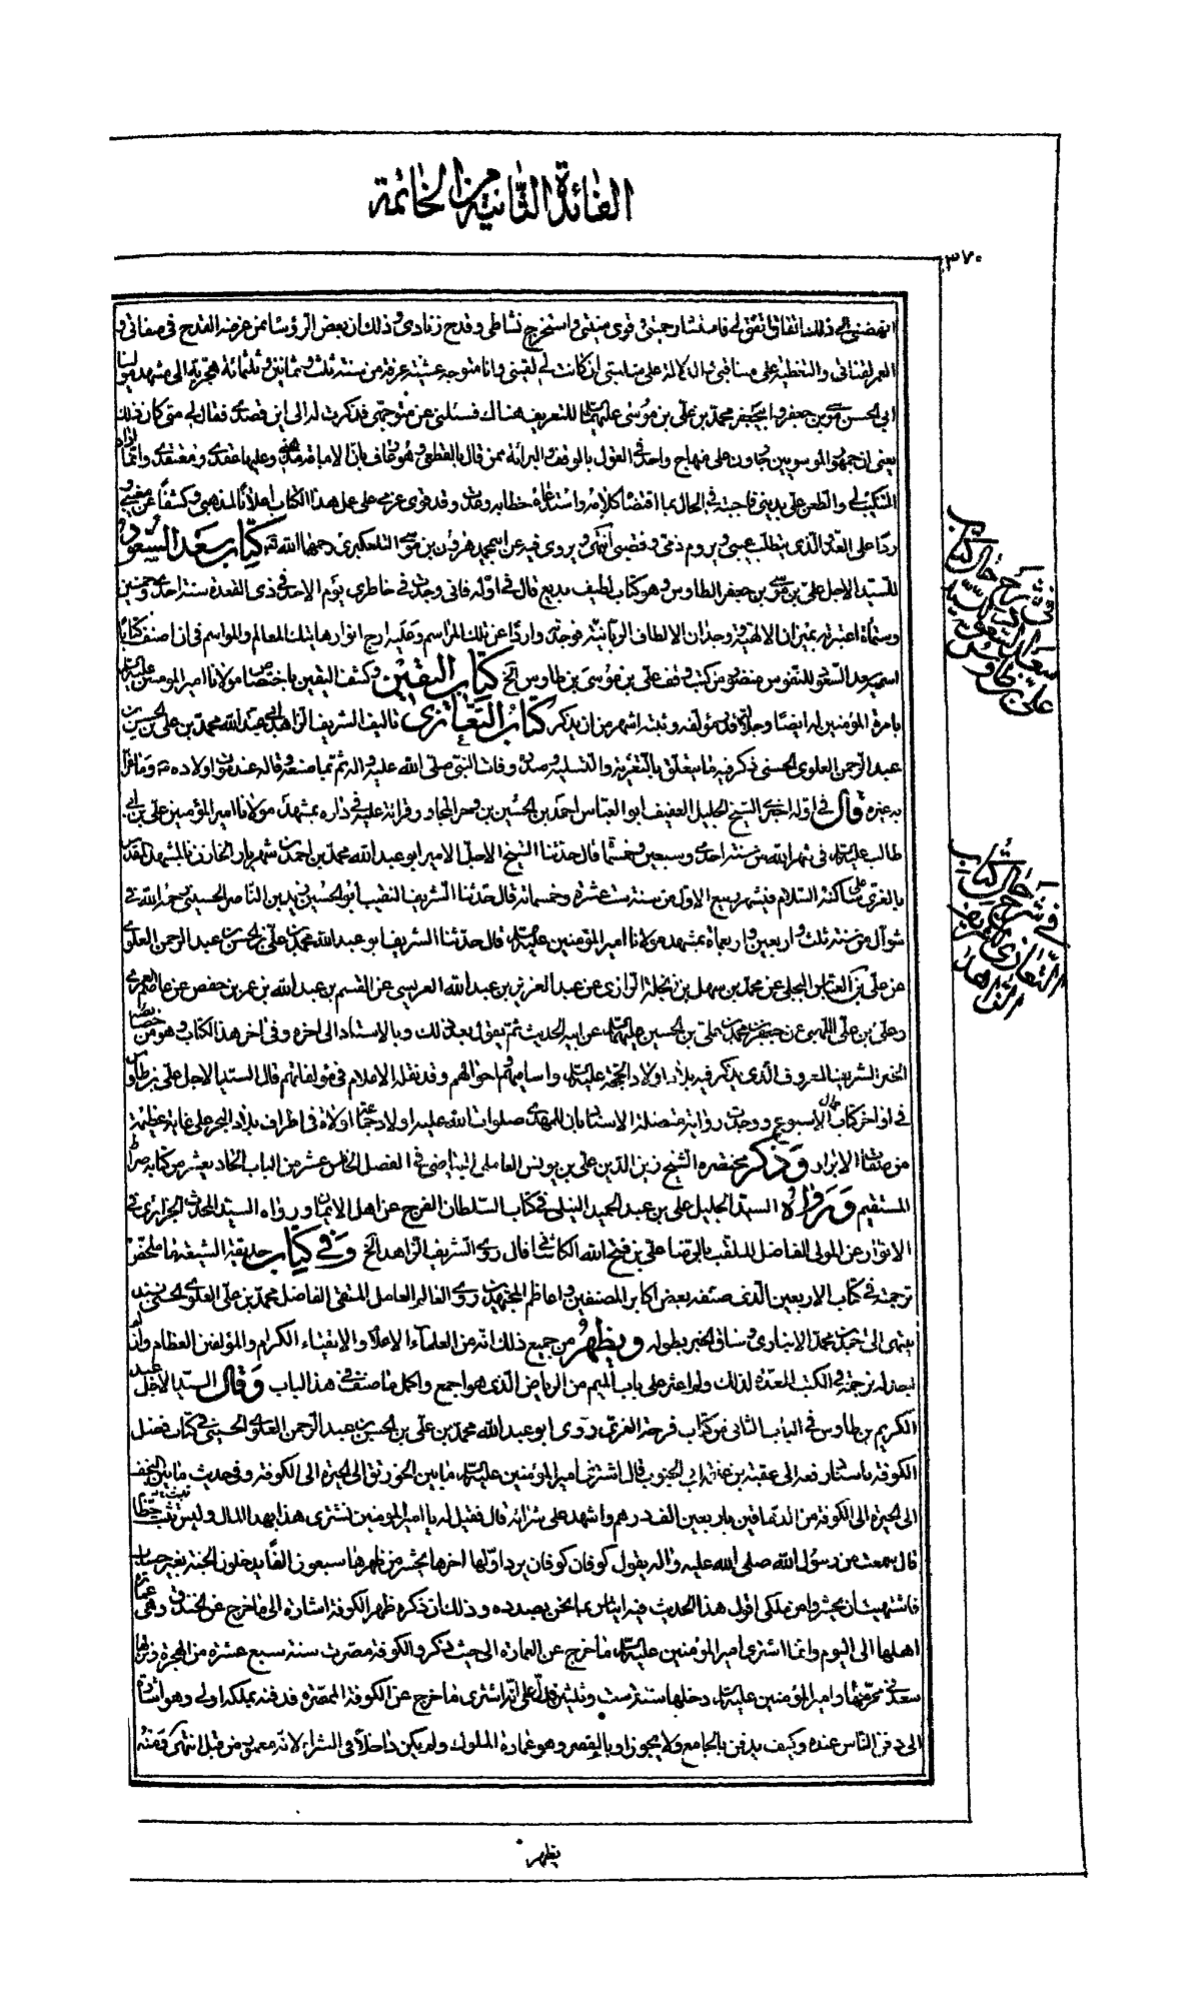 الفائدة الثانية من الخاتمة
٣٧٠
انهضني الى ذلك اتفاق اتفق لي فاستثار حميتي وقوى منيتي واستخرج نشاطي وقدح زنادي وذلك ان بعض الرؤساء ممن غرضه القدح في صفاتي و
الغمز لقناتي والتغطية على مناقبي والدلالة على مثلبتي ان كانت لي لقيني وانا متوجه عشية عرفة من سنة ثلث وثمانين وثلثمائة هجرية الى مشهد مولينا
ابي الحسن موسى بن جعفر وابي جعفر محمد بن علي بن موسى عليهما السلام للتعريف هناك فسئلني عن متوجهي فذكرت له الى اين قصدي فقال لي متى كان ذلك
يعني ان جمهور الموسويين جارون على منهاج واحد في القول بالوقف والبرائة ممن قال بالقطع وهو عارف بان الامامة مذهبي وعليها عقدي ومعتقدي وانما اراد
التنكيت لي والطعن على ديني فاجبته في الحال بما اقتضاه كلامه واستدعاه خطابه وعدت وقد قوى عزمي على عمل هذا الكتاب اعلانا لمذهبي وكشفا عن مغيبي و
ردا على العدو الذي يتطلب عيبي ويروم ذمي وقصبي انتهى ويروي فيه عن ابي محمد هرون بن موسى التلعكبري رحمهما الله تعالى كتاب سعد السعود
للسيد الاجل علي بن موسى بن جعفر الطاوس وهو كتاب لطيف بديع قال في اوله فاني وجدت في خاطري يوم الاحد في ذي القعدة سنة احدى وخمسين
وستمائة اعتبرته بميزان الالهية وجدان الالطاف الربانية فوجدته واردا عن تلك المراسم وعليه ارج انوار هاتيك المعالم والمواسم في ان اصنف كتابا
اسميه سعد السعود للنفوس منضود من كتب وقف علي بن موسى بن طاوس الخ كتاب اليقين وكشف اليقين باختصاص مولانا امير المؤمنين عليه السلام
بامرة المؤمنين له ايضا وجلالة قدر مؤلفه وثبته اشهر من ان يذكر كتاب التعازي تاليف الشريف الزاهد ابي عبد الله محمد بن علي بن الحسن بن
عبد الرحمن العلوي الحسني ذكر فيه ما يتعلق بالتعزية والتسلية وصدره وفات النبي صلى الله عليه واله ثم بما صنعه وقاله عند موت اولاده وما عزا
به غيره قال في اوله اخبرني الشيخ الجليل العفيف ابو العباس احمد بن الحسين بن وجه المجاور قرائة عليه في داره بمشهد مولانا امير المؤمنين علي بن ابي
طالب عليه السلام في شهر الله من سنة احدى وسبعين وخمسمائة قال حدثنا الشيخ الاجل الامير ابو عبد الله محمد بن احمد بن شهريار الخازن بالمشهد المقدس
بالغري على ساكنه السلام في شهر ربيع الاول من سنة ست عشرة وخمسمائة قال حدثنا الشريف النقيب ابو الحسين زيد بن الناصر الحسيني رحمه الله في
شوال من سنة ثلث واربعين واربعمائة بمشهد مولانا امير المؤمنين عليه السلام قال حدثنا الشريف ابو عبد الله محمد بن علي بن الحسن بن عبد الرحمن العلوي
عن علي بن العباس البجلي عن محمد بن سهل بن الرازي عن عبد العزيز بن عبد الله عن القسم بن عبد الله بن عمر بن حفص عن عاصم العمري
وعلي بن علي اللهبي عن جعفر بن محمد بن علي بن الحسين عليهما السلام عن ابيه الحديث ثم يقول بعد ذلك وبالاسناد الى اخره وفي اخر هذا الكتاب وهو من خصائصه
الخبر الشريف المعروف الذي يذكر فيه بلاد اولاد الحجة عليه السلام واساميهم واحوالهم وقد نقله الاعلام في مؤلفاتهم قال السيد الاجل علي بن طاوس
في اواخر كتاب جمال الاسبوع ووجدت رواية متصلة الاسناد بان للمهدي صلوات الله عليه اولاد جماعة ولاة في اطراف بلاد البحر على غاية عظيمة
من صفات الابرار وذكر مختصره الشيخ زين الدين علي بن يونس العاملي البياضي في الفصل الخامس عشر من الباب الحادي عشر من كتابه صراط
المستقيم ورواه السيد الجليل علي بن عبد الحميد النيلي في كتاب السلطان المفرج عن اهل الايمان ورواه السيد المحدث الجزائري في
الانوار عن المولى الفاضل الملقب بالرضا علي بن فتح الله الكاشاني قال روى الشريف الزاهد الخ وفي كتاب حديقة الشيعة ما ملخص
ترجمته في كتاب الاربعين الذي صنفه بعض اكابر المصنفين واعاظم المجتهدين روى العالم العامل المتقي الفاضل محمد بن علي العلوي الحسني بسند
ينتهي الى بن محمد الانباري وساق الخبر بطوله ويظهر من جميع ذلك انه من العلماء الاعلام والاتقياء الكرام والمؤلفين العظام وان لم
نجد له ترجمة في الكتب المعدة لذلك ولم اعثر على باب الميم من الرياض الذي هو اجمع واكمل ما صنف في هذا الباب وقال السيد الاجل عبد
الكريم بن طاوس في الباب الثاني من كتاب فرحة الغري روى ابو عبد الله محمد بن علي بن الحسن بن عبد الرحمن العلوي الحسيني في كتاب فضل
الكوفة باسناد رفعه الى عقبة بن علقمة ابي الجنوب قال اشترى امير المؤمنين عليه السلام ما بين الخورنق الى الحيرة الى الكوفة وفي حديث ما بين النجف
الى الحيرة الى الكوفة من الدهاقين باربعين الف درهم واشهد على شرائه قال فقيل له يا امير المؤمنين تشتري هذا بهذا المال وليس تنبت حظا
قال سمعت من رسول الله صلى الله عليه واله يقول كوفان كوفان يرد اولها اخرها يحشر من ظهرها سبعون الفا يدخلون الجنة بغير حساب
فاشتهيت ان يحشروا من ملكي اقول هذا الحديث فيه ايناس بما نحن بصدده وذلك ان ذكره ظهر الكوفة اشارة الى ما خرج عن الخندق وهي عمارة
اهلها الى اليوم وانما اشترى امير المؤمنين عليه السلام ما خرج عن العمارة الى حيث ذكر والكوفة مصرت سنة سبع عشرة من الهجرة ونزلها
سعد في محرمها وامير المؤمنين عليه السلام دخلها سنة ست وثلثين فدل على انه اشترى ما خرج عن الكوفة الممصرة فدفنه بملكه اولى وهو اشارة
الى دفن الناس عنده وكيف يدفن بالجامع ولا يجوز او بالقصر وهو عمارة الملوك ولم يكن داخلا في الشراء لانه معمور من قبل انتهى قصته
في شرح حال كتاب
سعد السعود للسيد
علي بن طاوس
في شرح حال كتاب
التعازي للشريف
الزاهد
يظهر